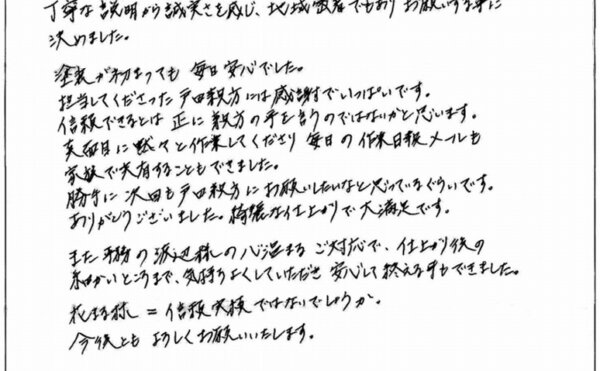 丁寧な説明から誠実さを感じ、地域密着でもありお願いする事に
決めました。
塗装が初まっても毎日安心でした。
担当してくださった戸田親方には感謝でいっぱいです。
信頼できるとは正に親方の事を言うのではないかと思います。
真面目に黙々と作業してくださり毎日の作業日報メールも
家族で共有することもできました。
勝手に次回も戸田親方にお願いしたいなと思っているぐらいです。
ありがとうございました。綺麗な仕上がりで大満足です。
また事務の渡辺様の心温まるご対応で、仕上がり後の
細かいところまで、気持ちよくしていただき安心して終える事もできました。
＝信頼実績ではないでしょうか。
今後ともよろしくお願いいたします。